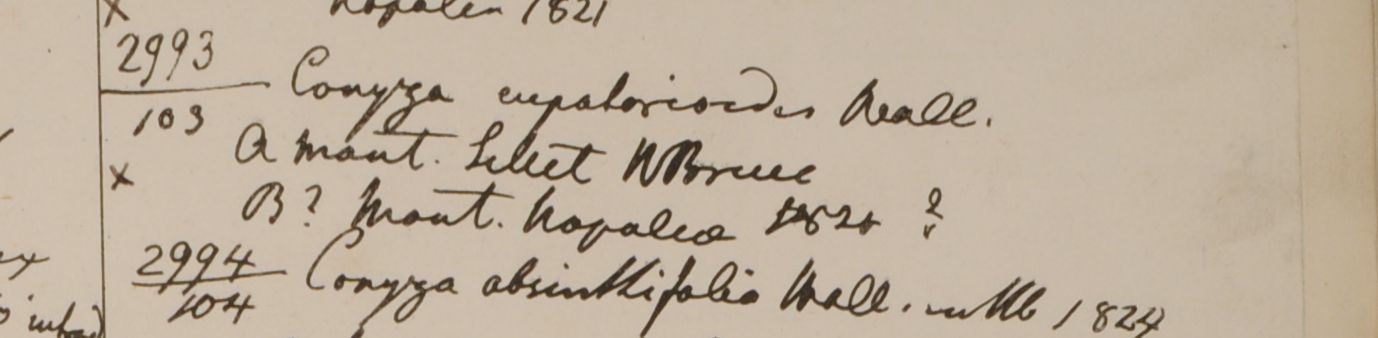 x Napalia 1821
2993
103 Conyza eupatorioides Wall.
A Mont. Sillet WBruce
x B? Mont. Napalia 1821 ?
2994
104 Conyza absinthifolia Wall. in Hb 1824